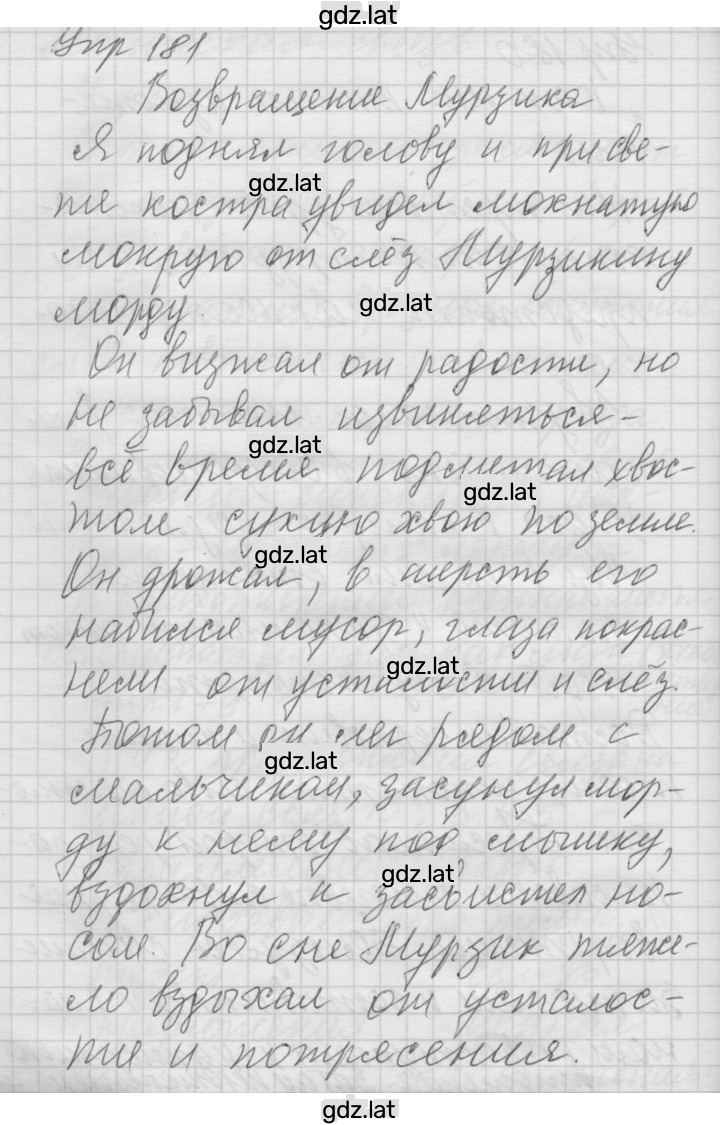 gdz.lat
Упр 181
Возвращение Мурзика
Я поднял голову и при све-
gdz.lat
те костра увидел мохнатую
мокрую от слёз Мурзикину
gdz.lat
морду.
Он визжал от радости, но
не забывал извиняться -
gdz.lat
всё время подметал хвос-
gdz.lat
том сухую хвою по земле.
gdz.lat
Он дрожал, в шерсть его
набился мусор, глаза покрас-
gdz.lat
нели от усталости и слёз.
Потом он лег рядом с
gdz.lat
мальчиком, засунул мор-
ду к нему под мышку,
gdz.lat
вздохнул и засвистел но-
сом. Во сне Мурзик тяже-
ло вздыхал от усталос-
ти и потрясения.
gdz.lat